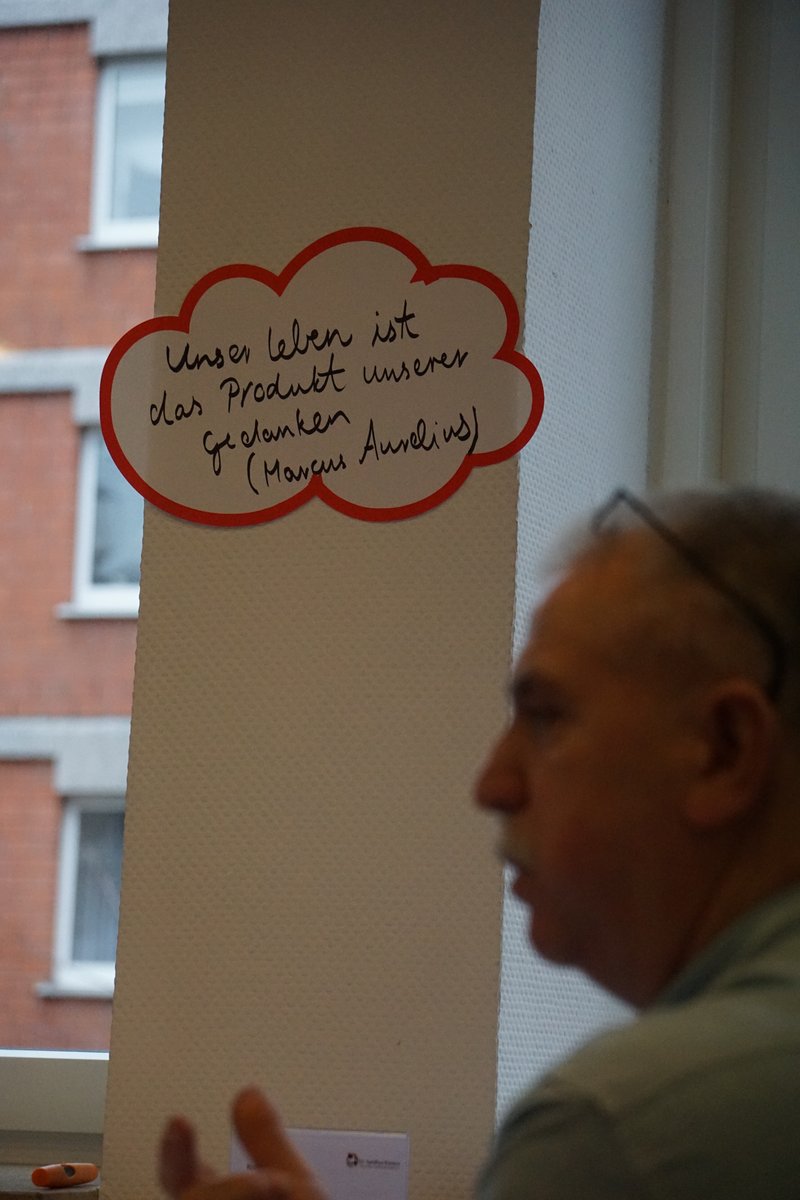 Unser Leben ist
das Produkt unserer
Gedanken
(Marcus Aurelius)